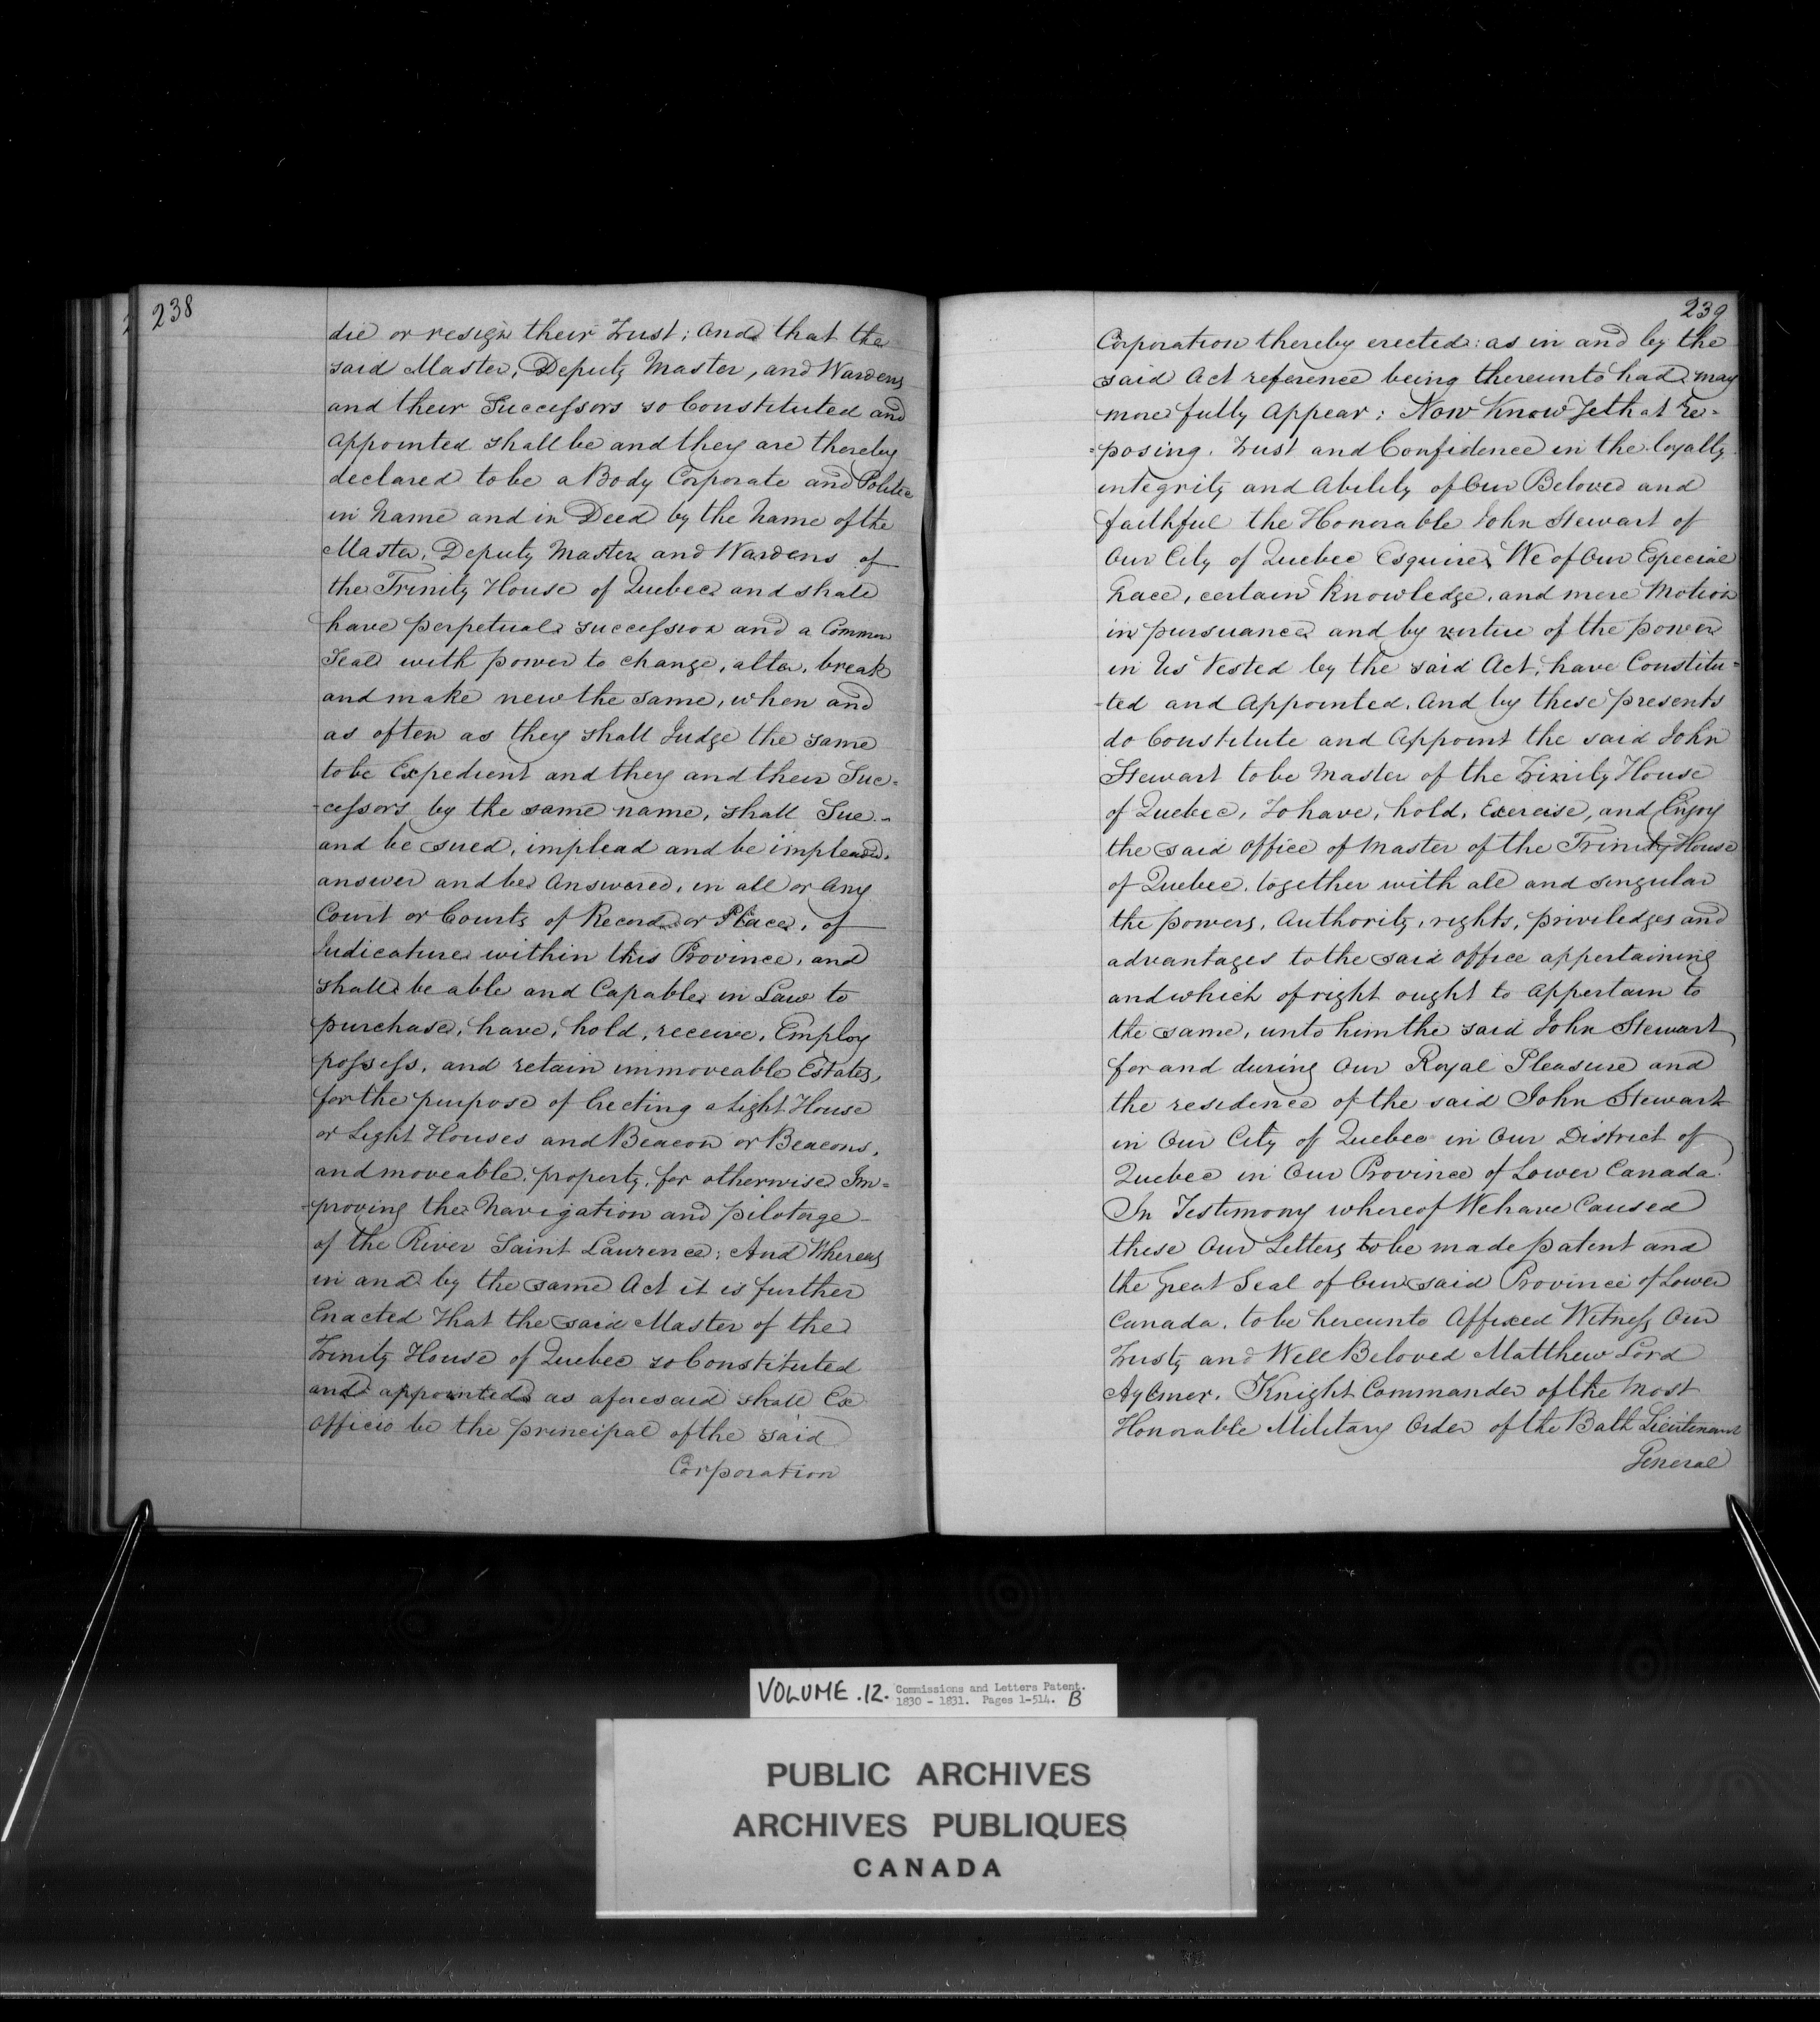 238
die or resign their Trust; And that the
said Master, Deputy Master, and Wardens
and their Successors so Constituted and
appointed shall be and they are thereby
declared to be a Body Corporate and Politic
in Name and in Deed by the Name of the
Master, Deputy Master and Wardens of
the Trinity House of Quebec and shall
have perpetual succession and a Common
Seal with power to change, alter, break
and make new the same, when and
as often as they shall Judge the same
to be Expedient and they and their Suc=
-cessors by the same name, shall Sue -
and be sued, implead and be impleaded,
answer and be Answered, in all or Any
Court or Courts of Record or Place, of
Judicature within this Province, and
shall be able and Capable in Law to
purchase, have, hold, receive, Employ
possess, and retain immoveable Estates,
for the purpose of Erecting a Light House
or Light Houses and Beacon or Beacons,
and moveable property, for otherwise Im=
-proving the Navigation and pilotage -
of the River Saint Laurence; And Whereas
in and by the same Act it is further
Enacted That the said Master of the
Trinity House of Quebec so Constituted
and appointed as aforesaid shall Ex
Officio be the principal of the said
Corporation
239
Corporation thereby erected: as in and by the
said Act reference being thereunto had may
more fully Appear; Now Know Ye that re=
=posing Trust and Confidence in the loyalty
integrity and Ability of Our Beloved and
faithful the Honorable John Stewart of
Our City of Quebec Esquire We of Our Especial
Grace, certain Knowledge, and mere Motion
in pursuance and by virtue of the power
in Us Vested by the said Act, have Constitu=
-ted and Appointed, And by these presents
do Constitute and Appoint the said John
Stewart to be Master of the Trinity House
of Quebec, To have, hold, Exercise, and Enjoy
the said Office of Master of the Trinity House
of Quebec, together with all and singular
the powers, Authority, rights, priviledges and
advantages to the said Office appertaining
and which of right ought to Appertain to
the same, unto him the said John Stewart
for and during Our Royal Pleasure and
the residence of the said John Stewart
in Our City of Quebec in Our District of
Quebec in Our Province of Lower Canada.
In Testimony whereof We have Caused
these Our Letters to be made patent and
the Great Seal of Our said Province of Lower
Canada, to be hereunto Affixed Witness Our
Trusty and Well Beloved Matthew Lord
Aylmer, Knight Commander of the Most
Honorable Military Order of the Bath Lieutenant
General
VOLUME .12. Commissions and Letters Patent.
1830 - 1831. Pages 1-514. B
PUBLIC ARCHIVES
ARCHIVES PUBLIQUES
CANADA